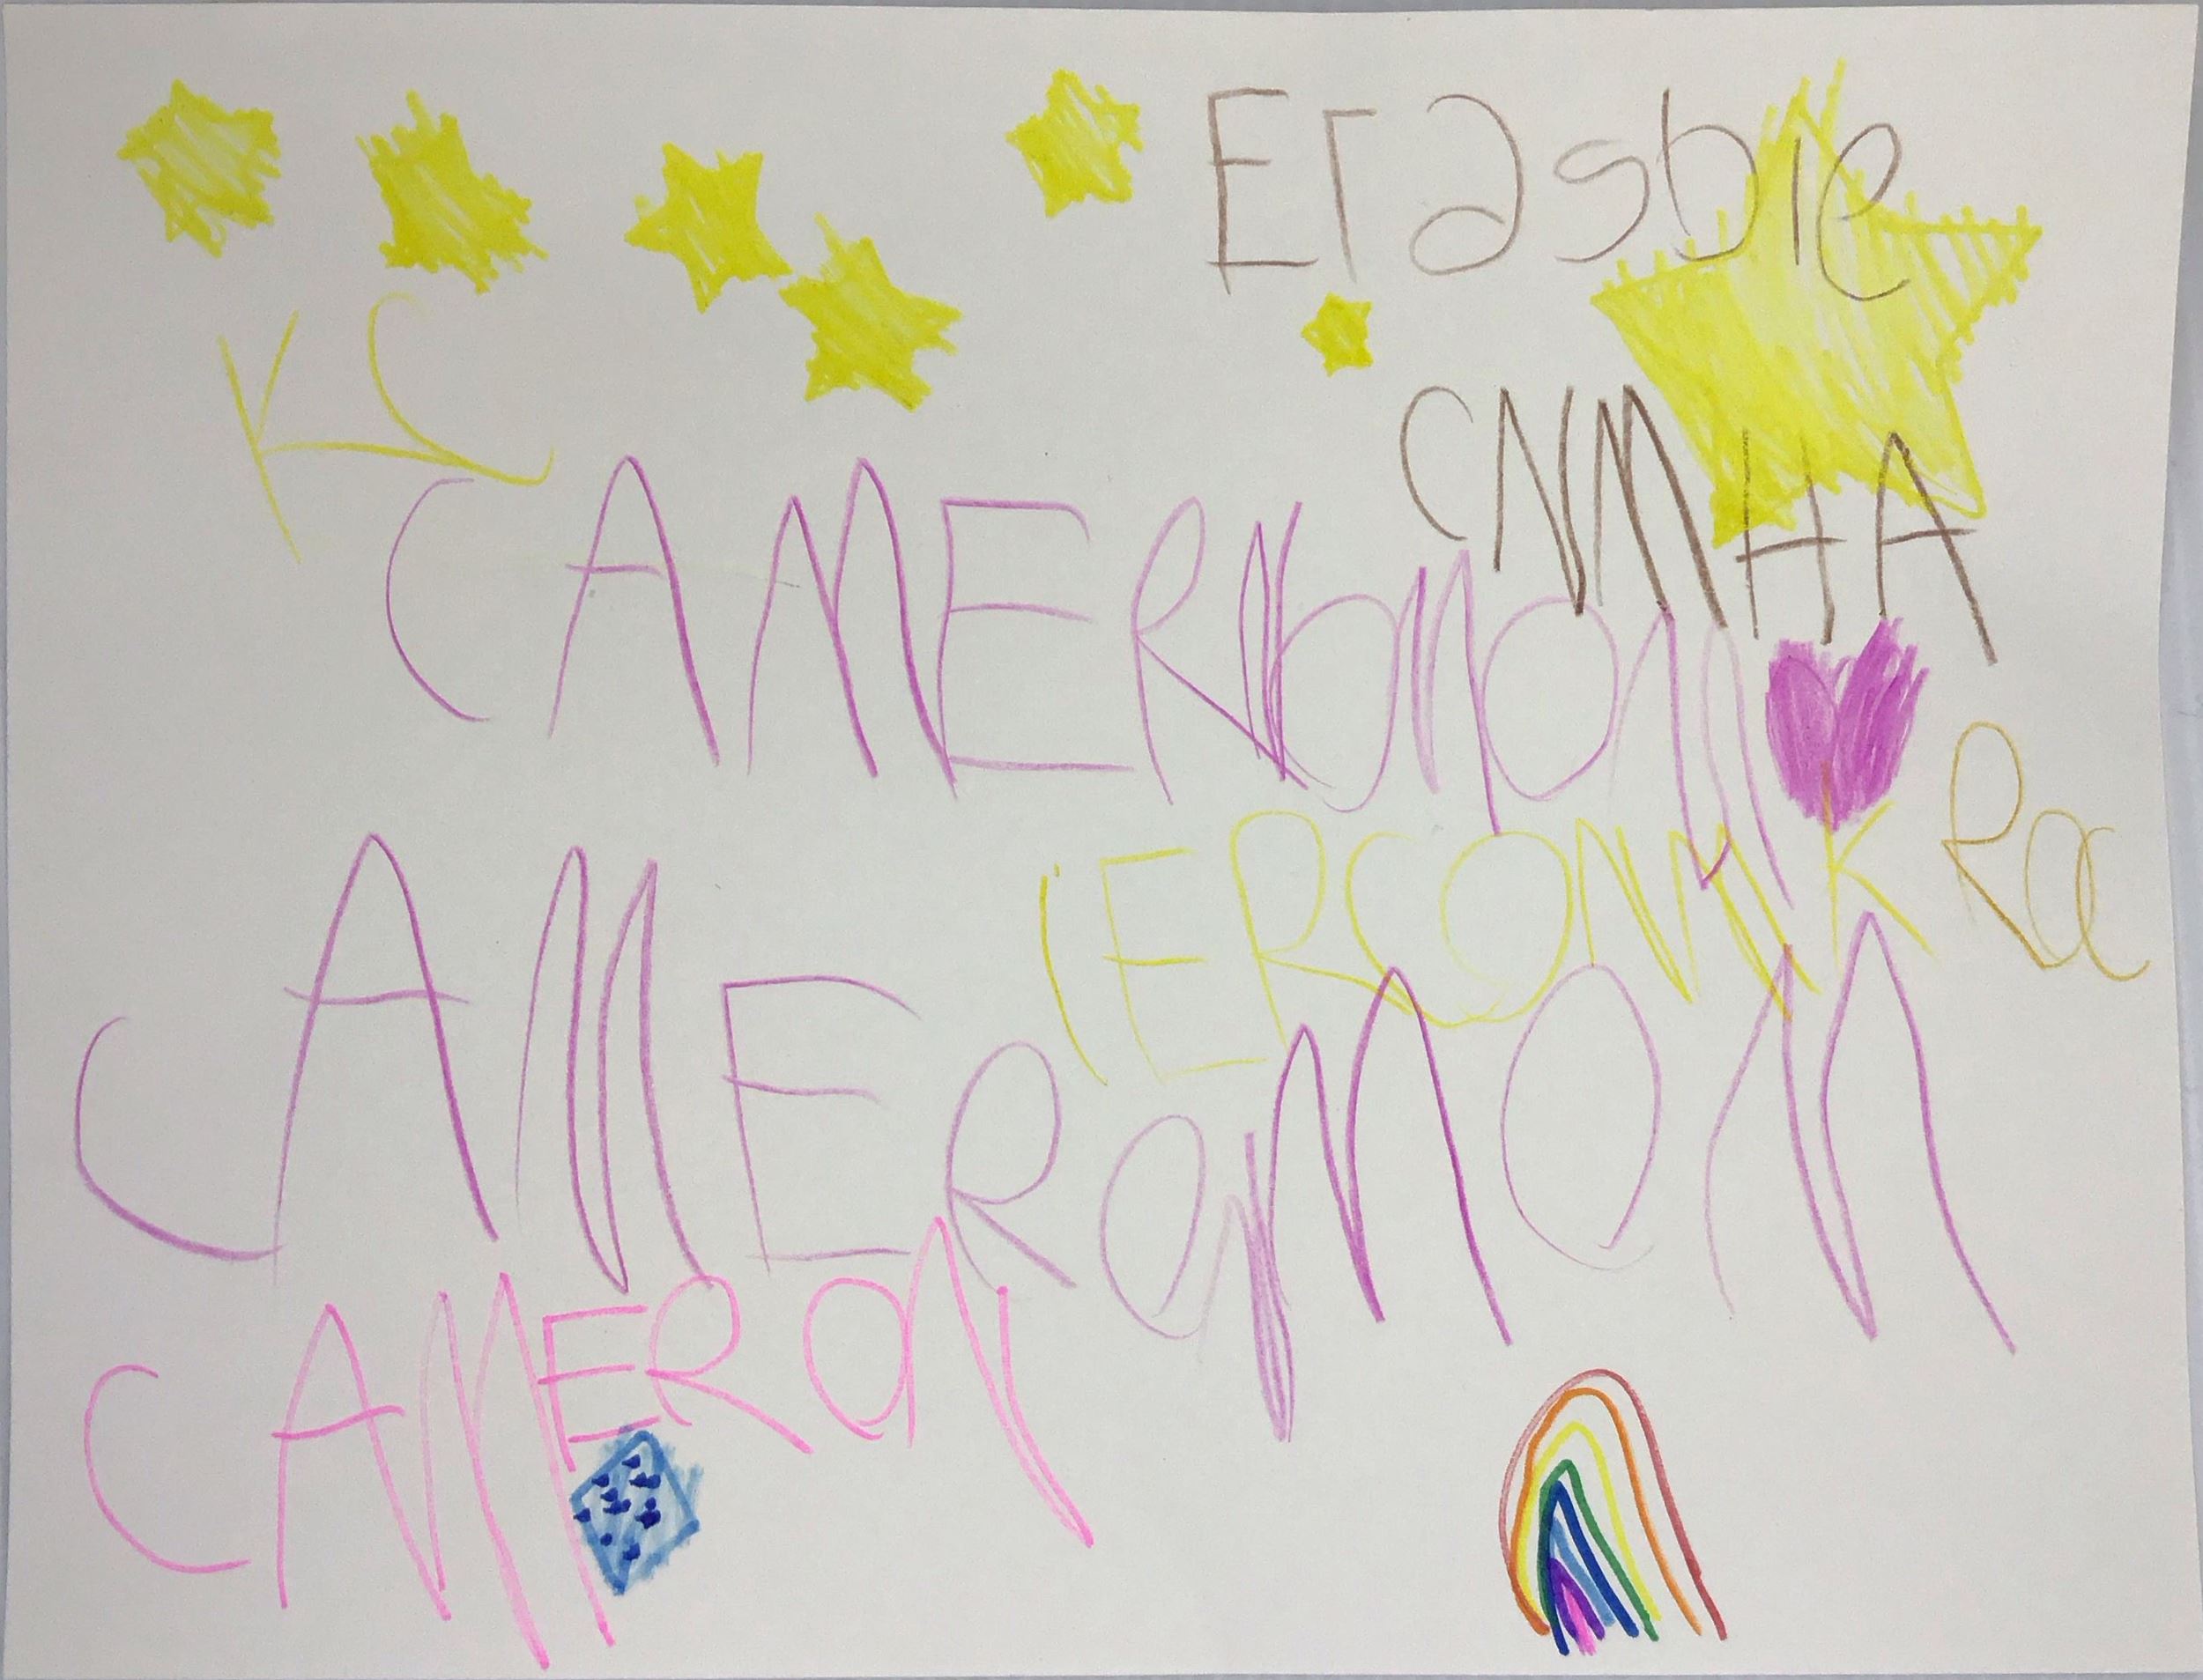 Erasble
KC
CNMHA
CAMERNOMOM
IERCOMK
Rac
CAMEROMOM
CAMERON